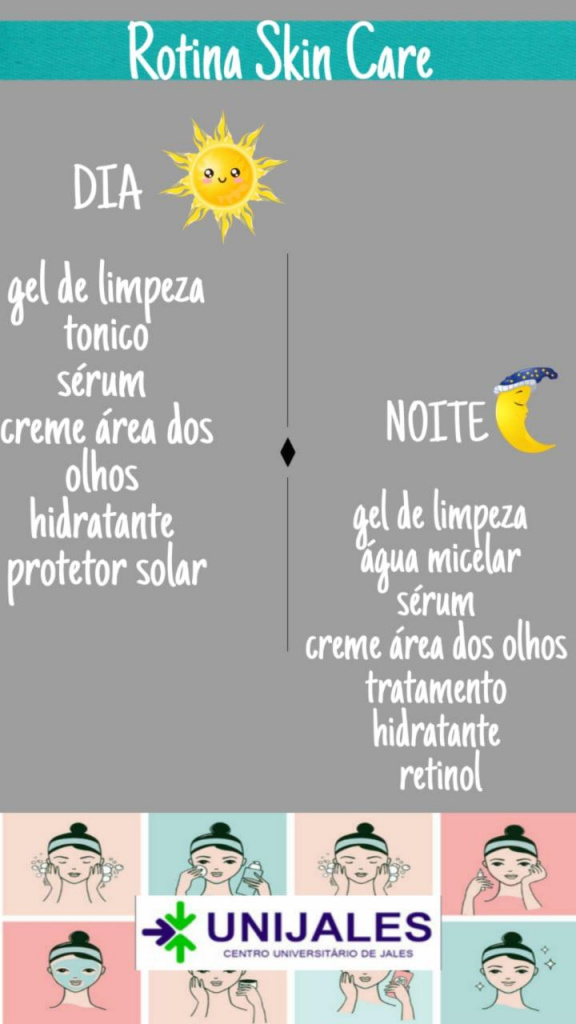 Rotina Skin Care
DIA
gel de limpeza
tonico
sérum
creme área dos
olhos
hidratante
protetor solar
NOITE
gel de limpeza
água micelar
sérum
creme área dos olhos
tratamento
hidratante
retinol
UNIJALES
CENTRO UNIVERSITÁRIO DE JALES